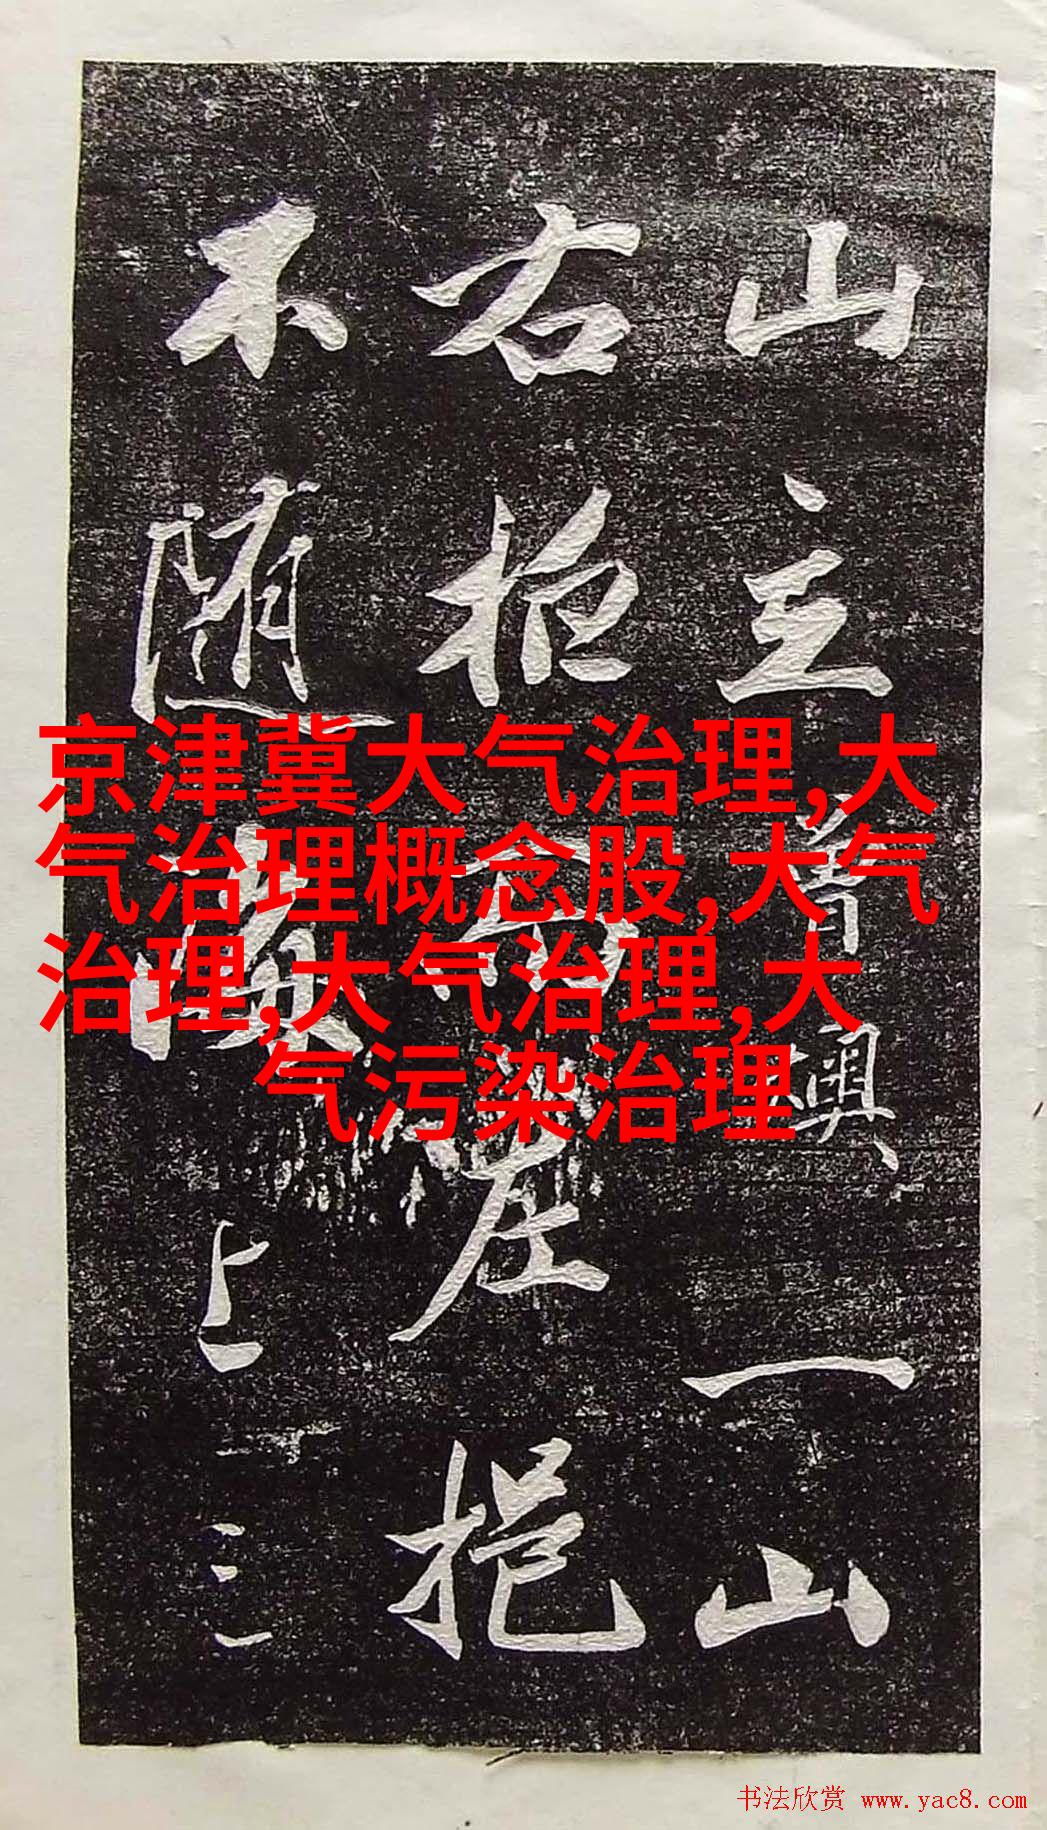 山主曾一山
右而左挹
不随上三
京津冀大气治理,大
气治理概念股,大气
治理,大气治理,大
气污染治理
书法欣赏 www.yac8.com